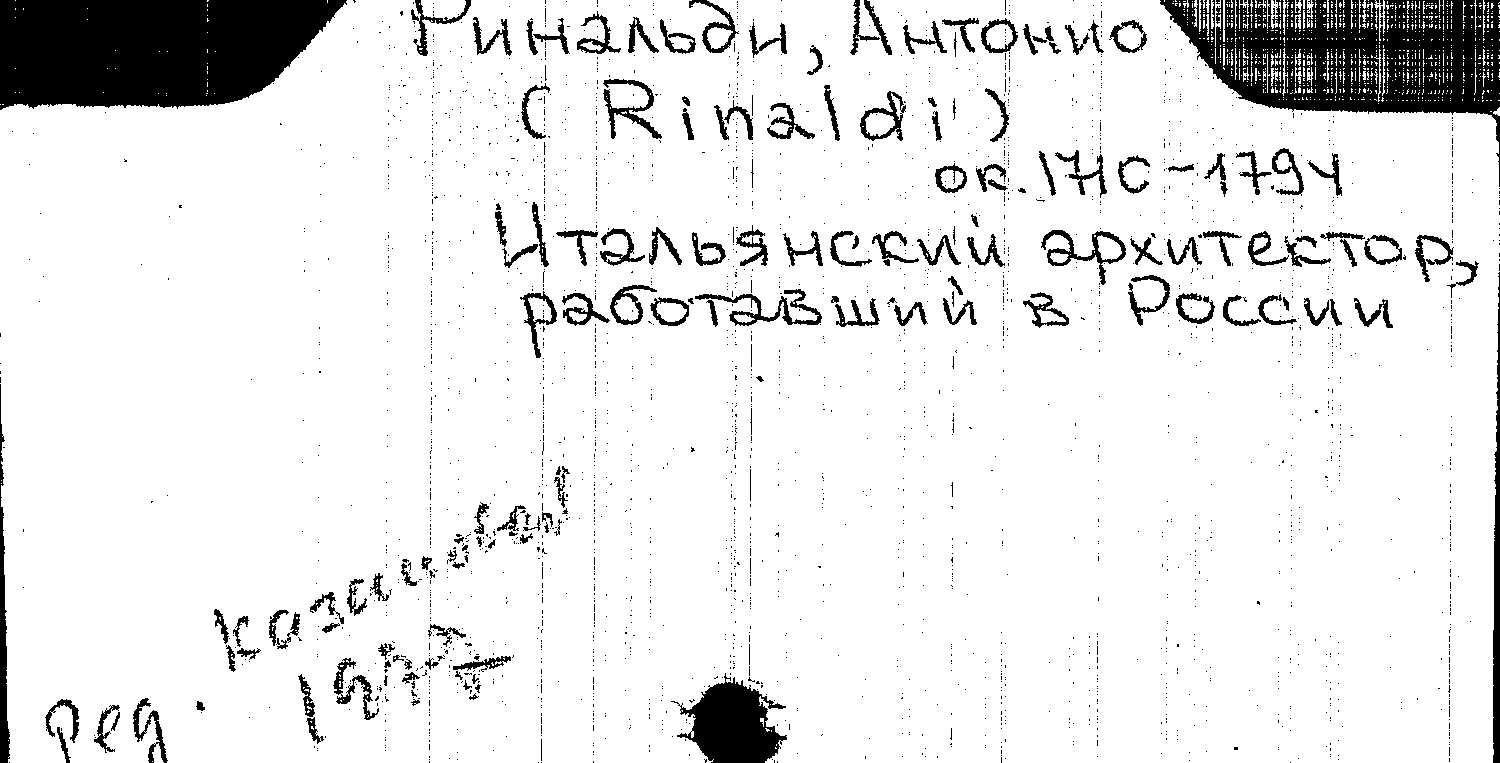 Ринальди, Антонио
(Rinaldi)
ок. 1710-1794
Итальянский архитектор,
работавший в России
Ред. Казанова
1977